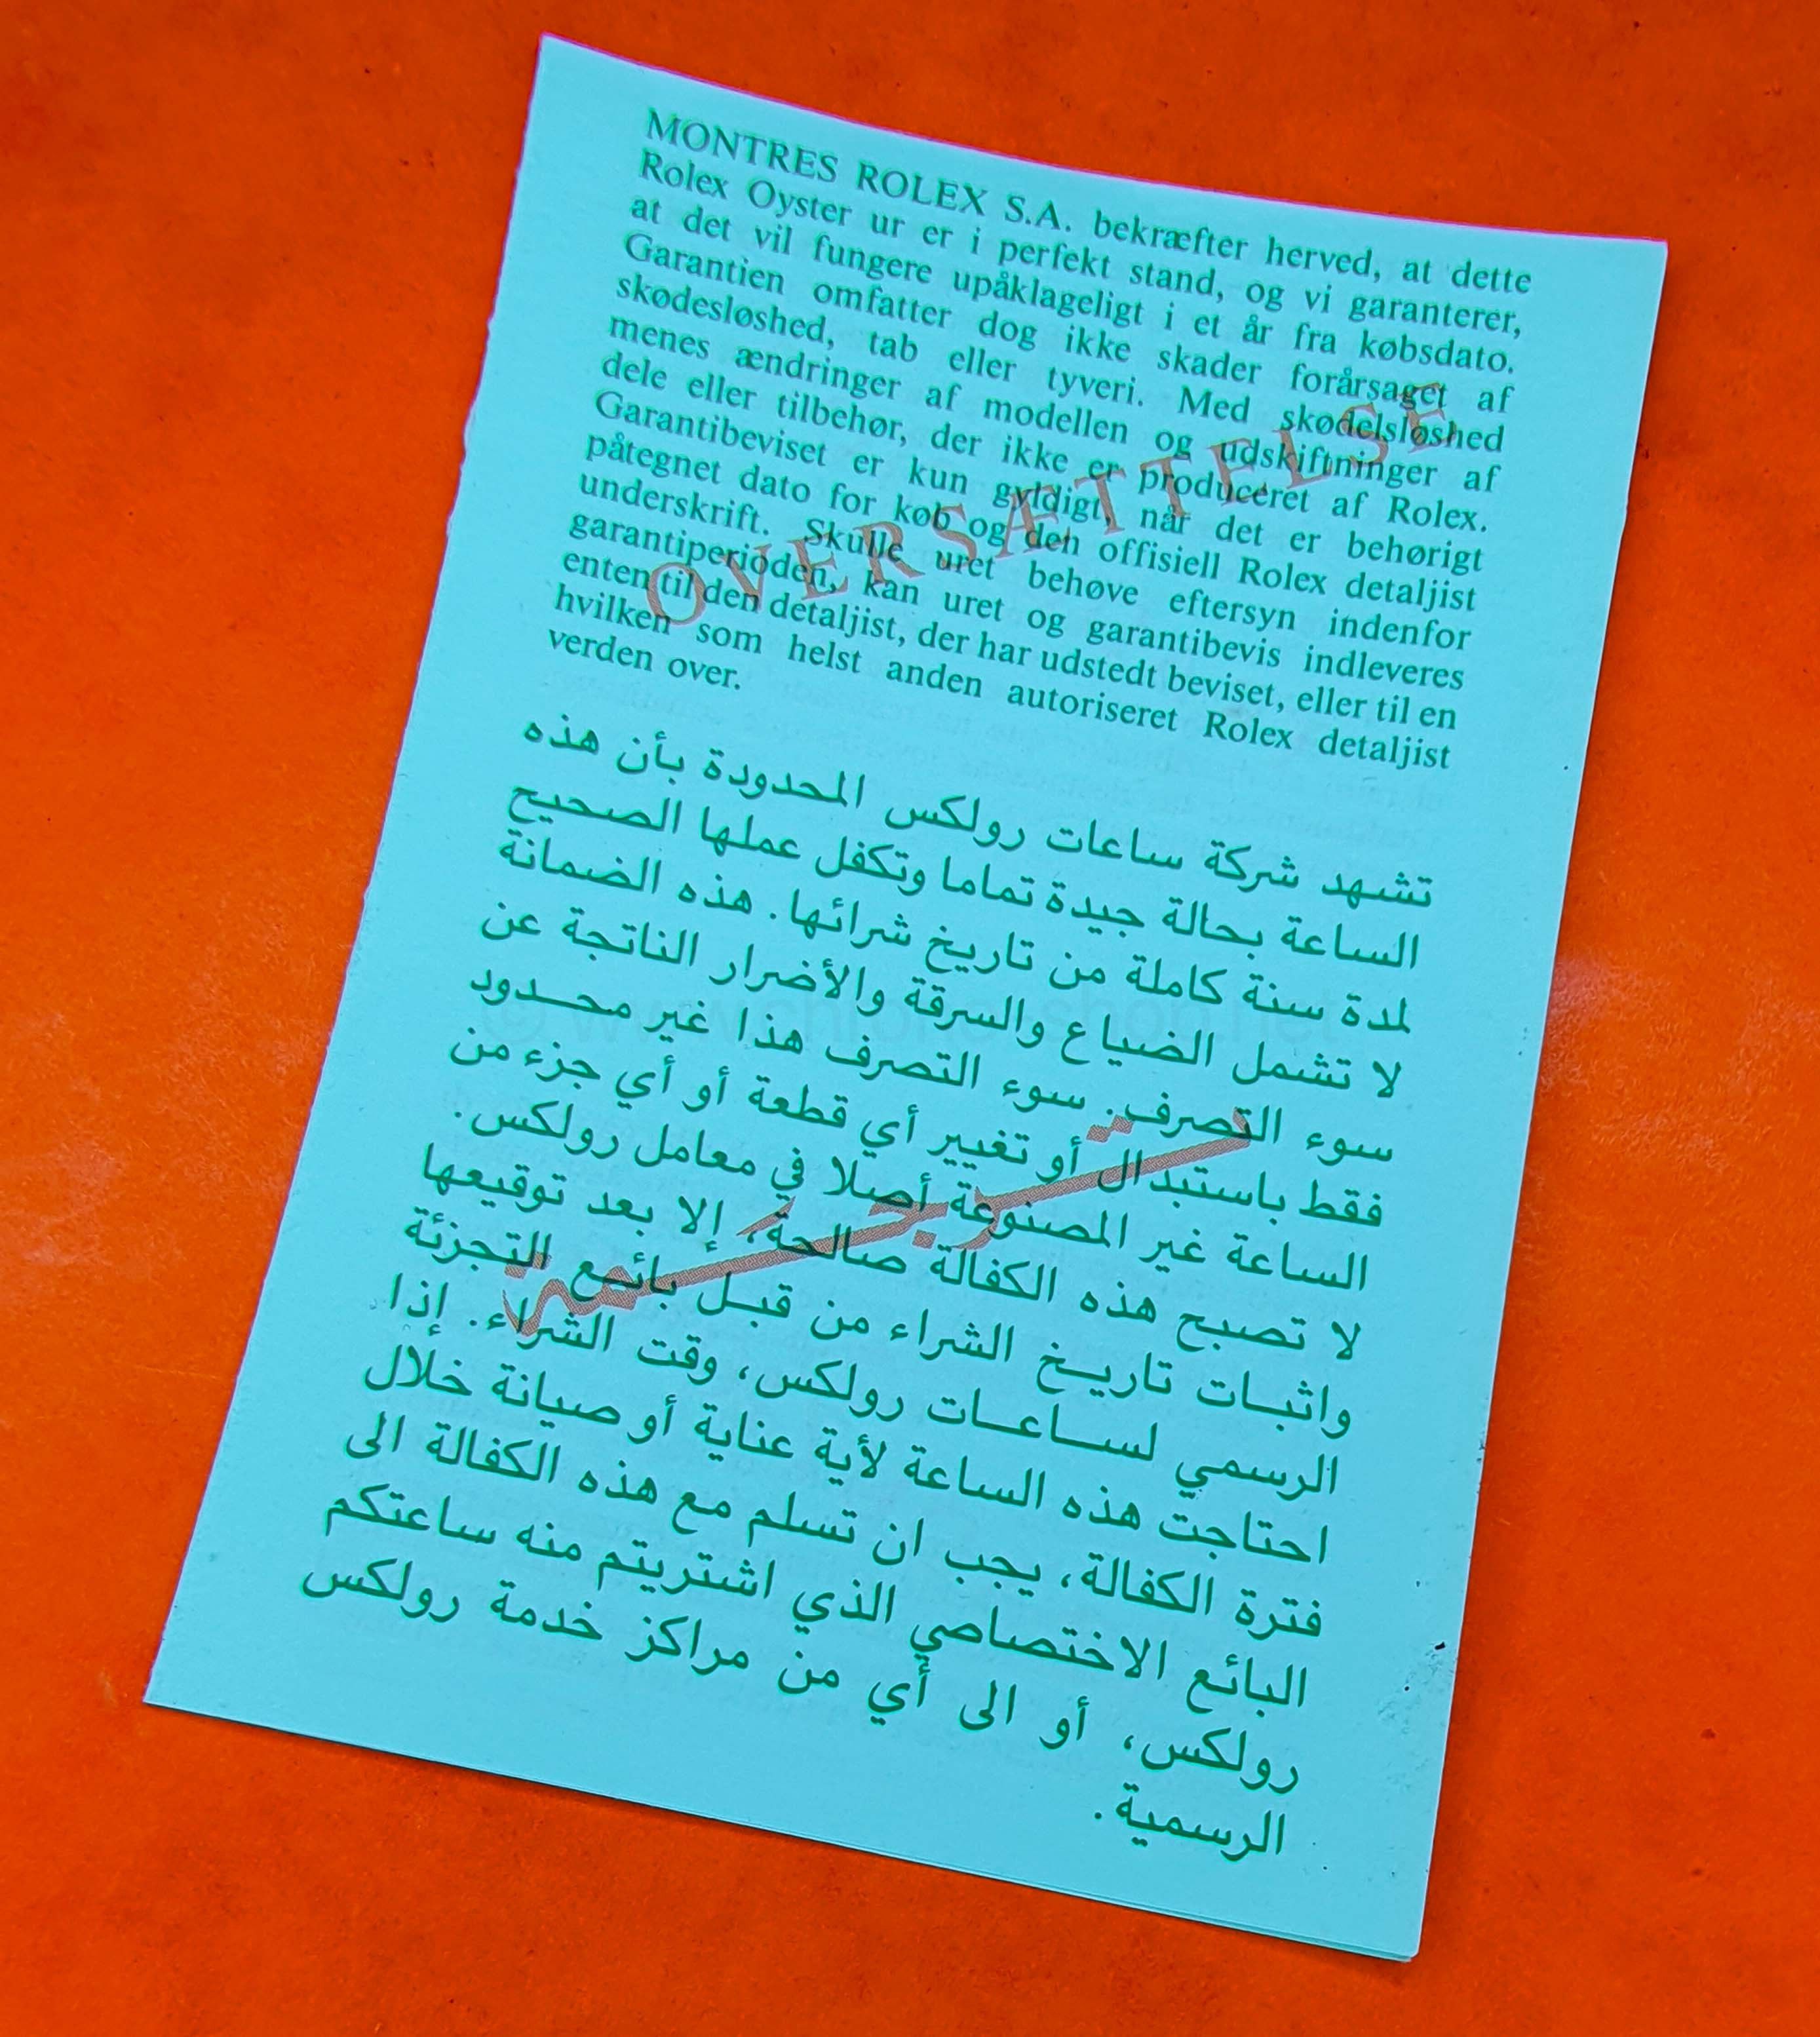 MONTRES ROLEX S.A. bekræfter herved, at dette
Rolex Oyster ur er i perfekt stand, og vi garanterer,
at det vil fungere upåklageligt i et år fra købsdato.
Garantien omfatter dog ikke skader forårsaget af
skødesløshed, tab eller tyveri. Med skødelsløshed
menes ændringer af modellen og udskiftninger af
dele eller tilbehør, der ikke er produceret af Rolex.
Garantibeviset er kun gyldigt, når det er behørigt
påtegnet dato for køb og den offisiell Rolex detaljist
underskrift. Skulle uret behøve eftersyn indenfor
garantiperioden, kan uret og garantibevis indleveres
enten til den detaljist, der har udstedt beviset, eller til en
hvilken som helst anden autoriseret Rolex detaljist
verden over.
OVERSÆTTELSE
تشهد شركة ساعات رولكس المحدودة بأن هذه
الساعة بحالة جيدة تماما وتكفل عملها الصحيح
لمدة سنة كاملة من تاريخ شرائها. هذه الضمانة
لا تشمل الضياع والسرقة والأضرار الناتجة عن
سوء التصرف. سوء التصرف هذا غير محدود
فقط باستبدال أو تغيير أي قطعة أو أي جزء من
الساعة غير المصنوعة أصلا في معامل رولكس.
لا تصبح هذه الكفالة صالحة، إلا بعد توقيعها
واثبات تاريخ الشراء من قبل بائع التجزئة
الرسمي لساعات رولكس، وقت الشراء. إذا
احتاجت هذه الساعة لأية عناية أو صيانة خلال
فترة الكفالة، يجب ان تسلم مع هذه الكفالة الى
البائع الاختصاصي الذي اشتريتم منه ساعتكم
رولكس، أو الى أي من مراكز خدمة رولكس
الرسمية.